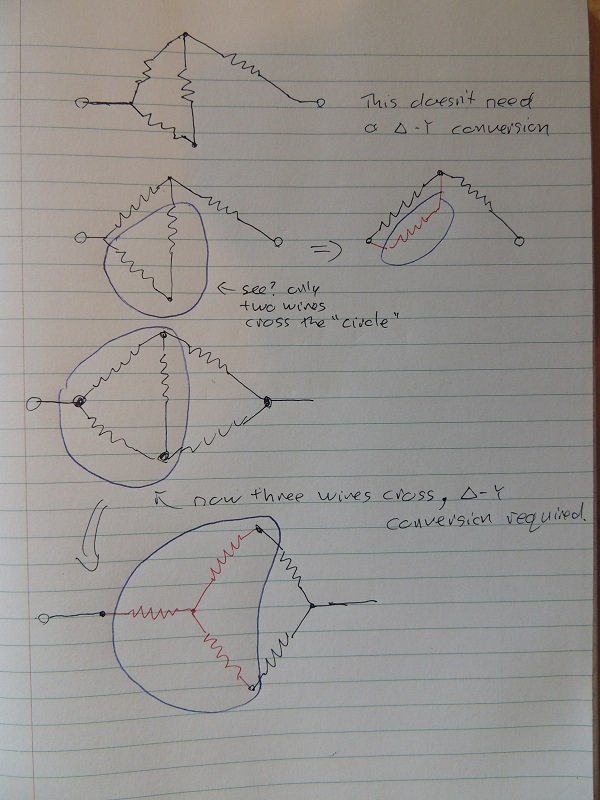 This doesn't need
a Δ-Y conversion
⇒
← see? only
two wires
cross the "circle"
↖ now three wires cross, Δ-Y
conversion required.